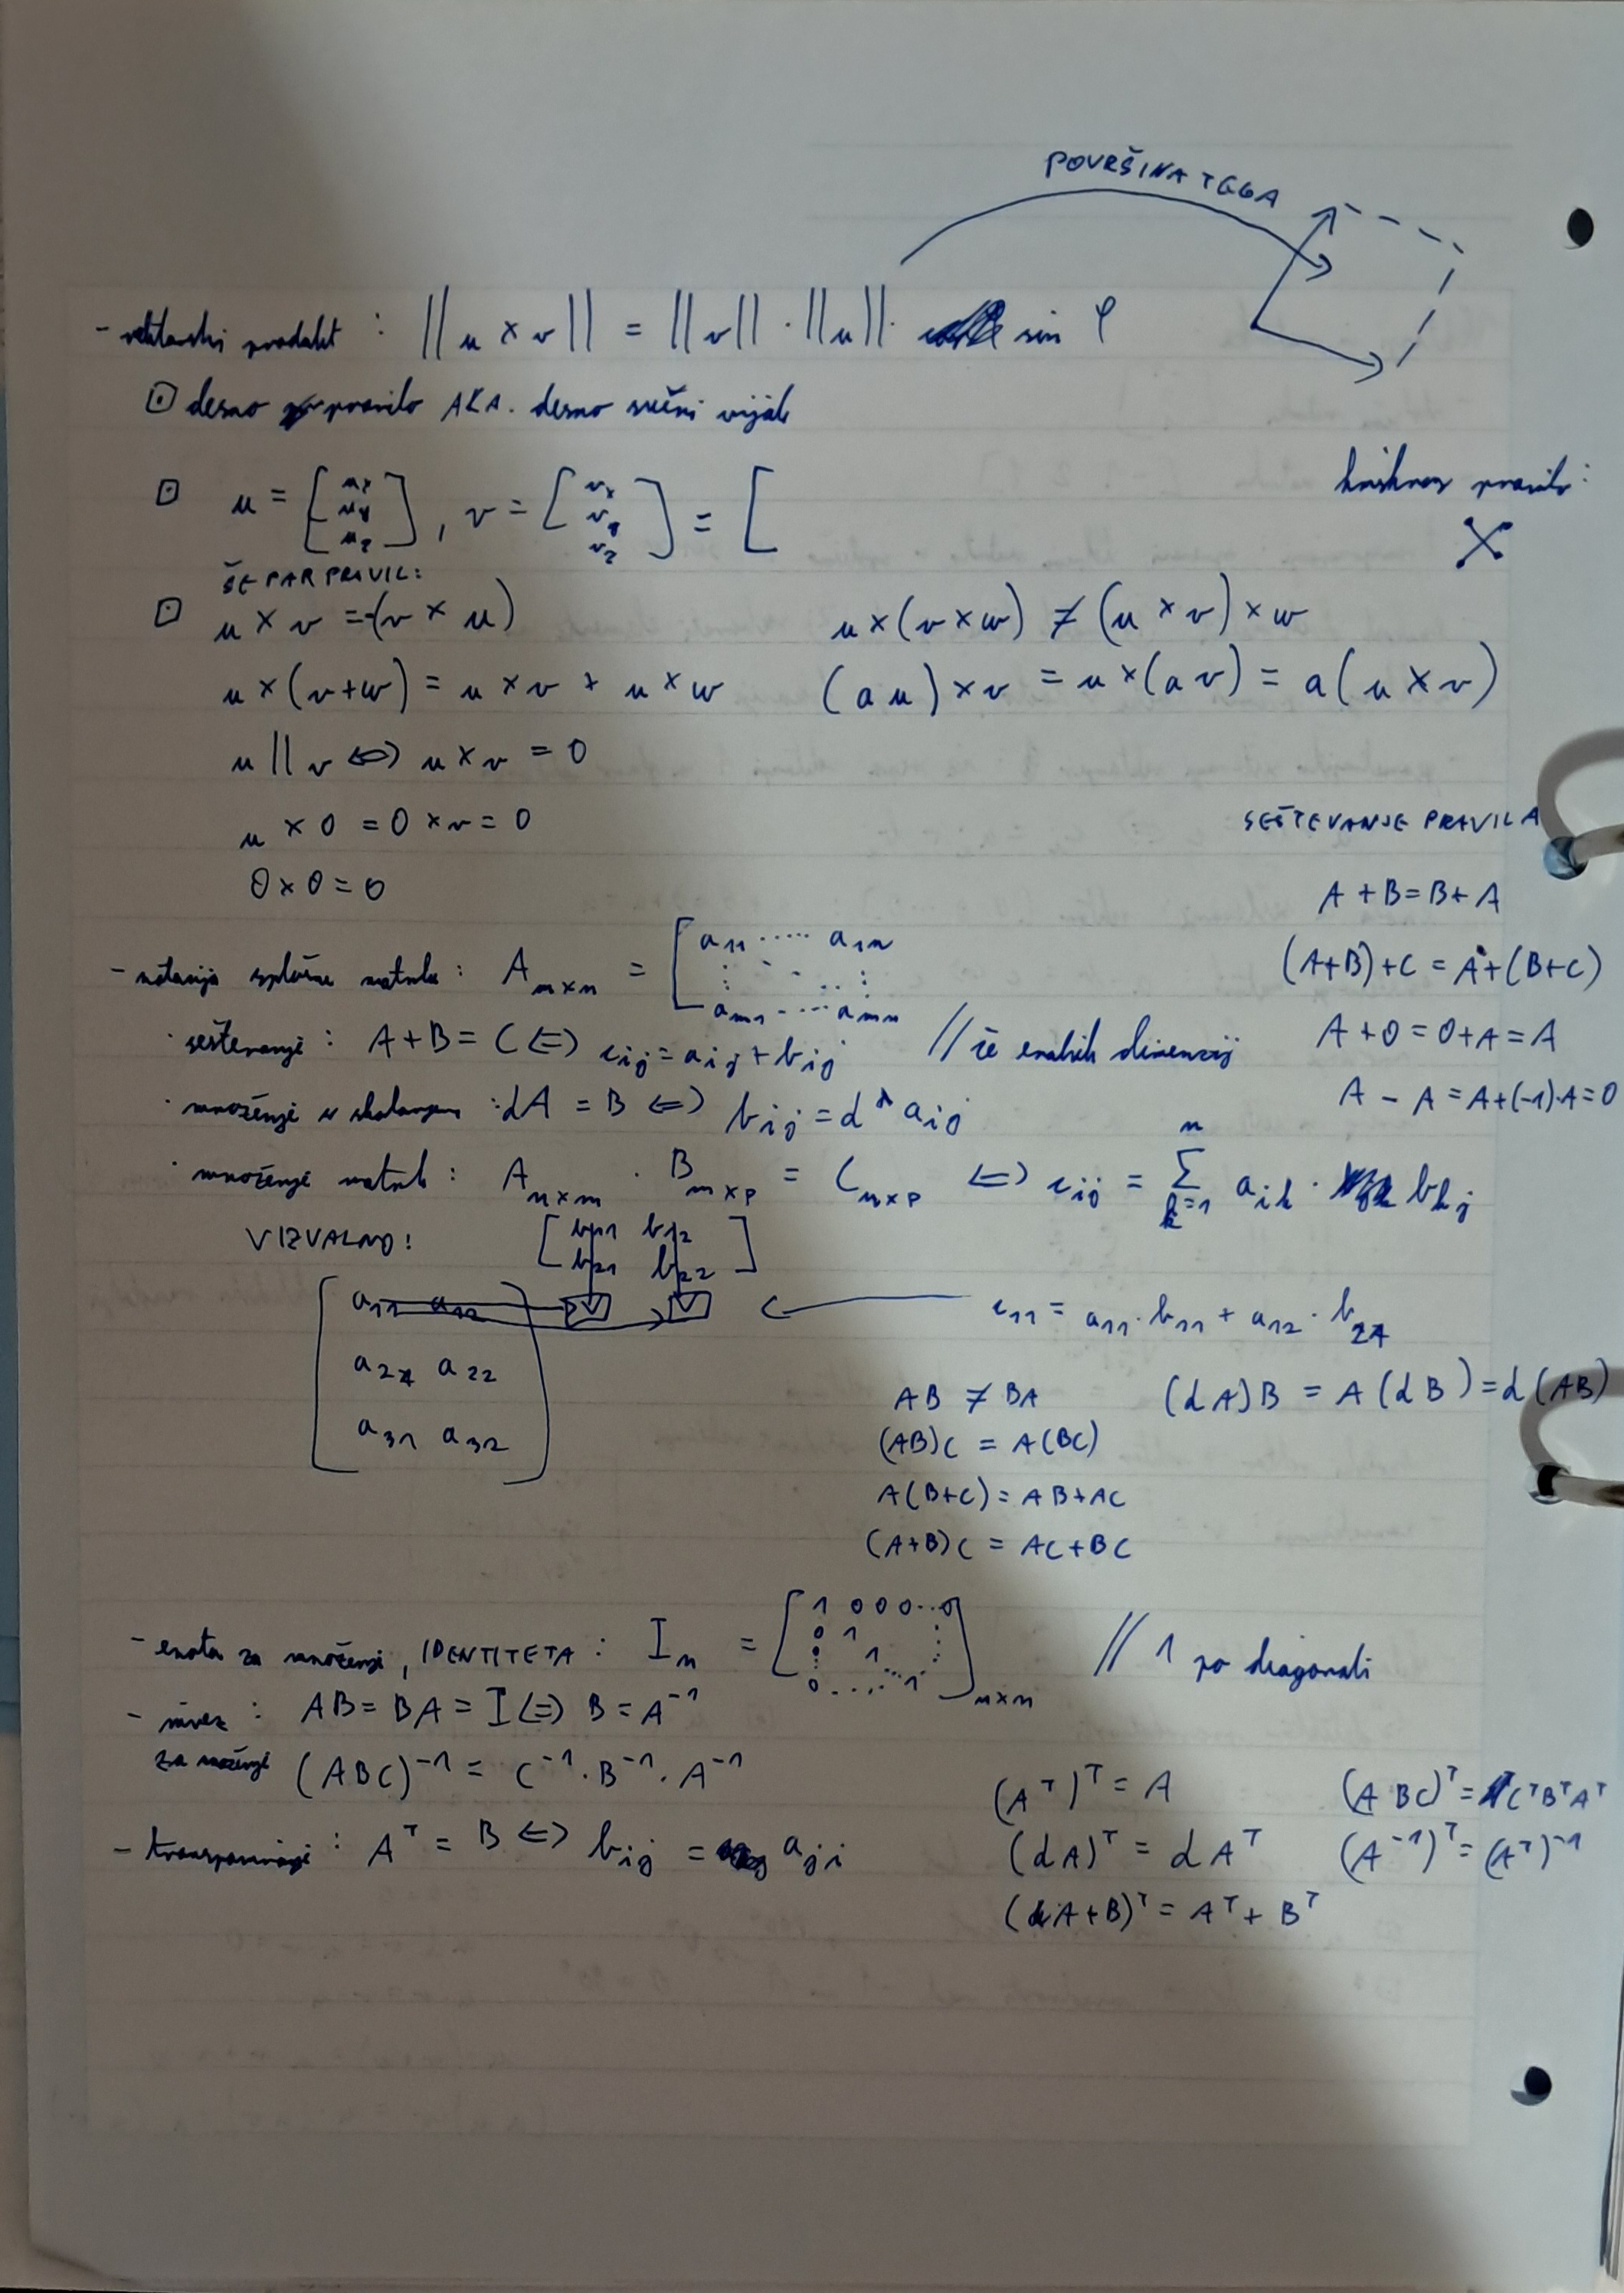 POVRŠINA TEGA
- vektorski produkt : ||u × v|| = ||v|| · ||u|| · sin φ
⊡ desno pravilo AKA. desno sučni vijak
⊡ u = [ux uy uz], v = [vx vy vz] = [
križno pravilo:
ŠE PAR PRAVIL:
⊡ u × v = -(v × u)
u × (v × w) ≠ (u × v) × w
u × (v+w) = u × v + u × w
(a u) × v = u × (a v) = a(u × v)
u || v <=> u × v = 0
u × 0 = 0 × v = 0
0 × 0 = 0
SEŠTEVANJE PRAVILA
A + B = B + A
(A+B)+C = A+(B+C)
A + 0 = 0 + A = A
A - A = A+(-1)·A = 0
- notacija splošne matrike : A m×n = [a11 ..... a1n
am1 - ... amn
· seštevanje : A+B = C <=> cij = aij + bij // če enakih dimenzij
· množenje s skalarjem : αA = B <=> bij = α * aij
· množenje matrik : A n×m · B m×p = C n×p <=> cij = Σ k=1 m aik · bkj
VIZUALNO:
[b11 b12
b21 b22]
[a11 a12
a21 a22
a31 a32]
c11 = a11 · b11 + a12 · b21
AB ≠ BA
(αA)B = A(αB) = α(AB)
(AB)C = A(BC)
A(B+C) = AB+AC
(A+B)C = AC+BC
- enota za množenje, IDENTITETA : In = [1 0 0 0 .. 0
0 1
1
0 . . . . 1] n×n // 1 po diagonali
- inverz : AB = BA = I <=> B = A⁻¹
za množenje (ABC)⁻¹ = C⁻¹ · B⁻¹ · A⁻¹
- transponiranje : Aᵀ = B <=> bij = aji
(Aᵀ)ᵀ = A
(ABC)ᵀ = CᵀBᵀAᵀ
(αA)ᵀ = αAᵀ
(A⁻¹)ᵀ = (Aᵀ)⁻¹
(A+B)ᵀ = Aᵀ + Bᵀ